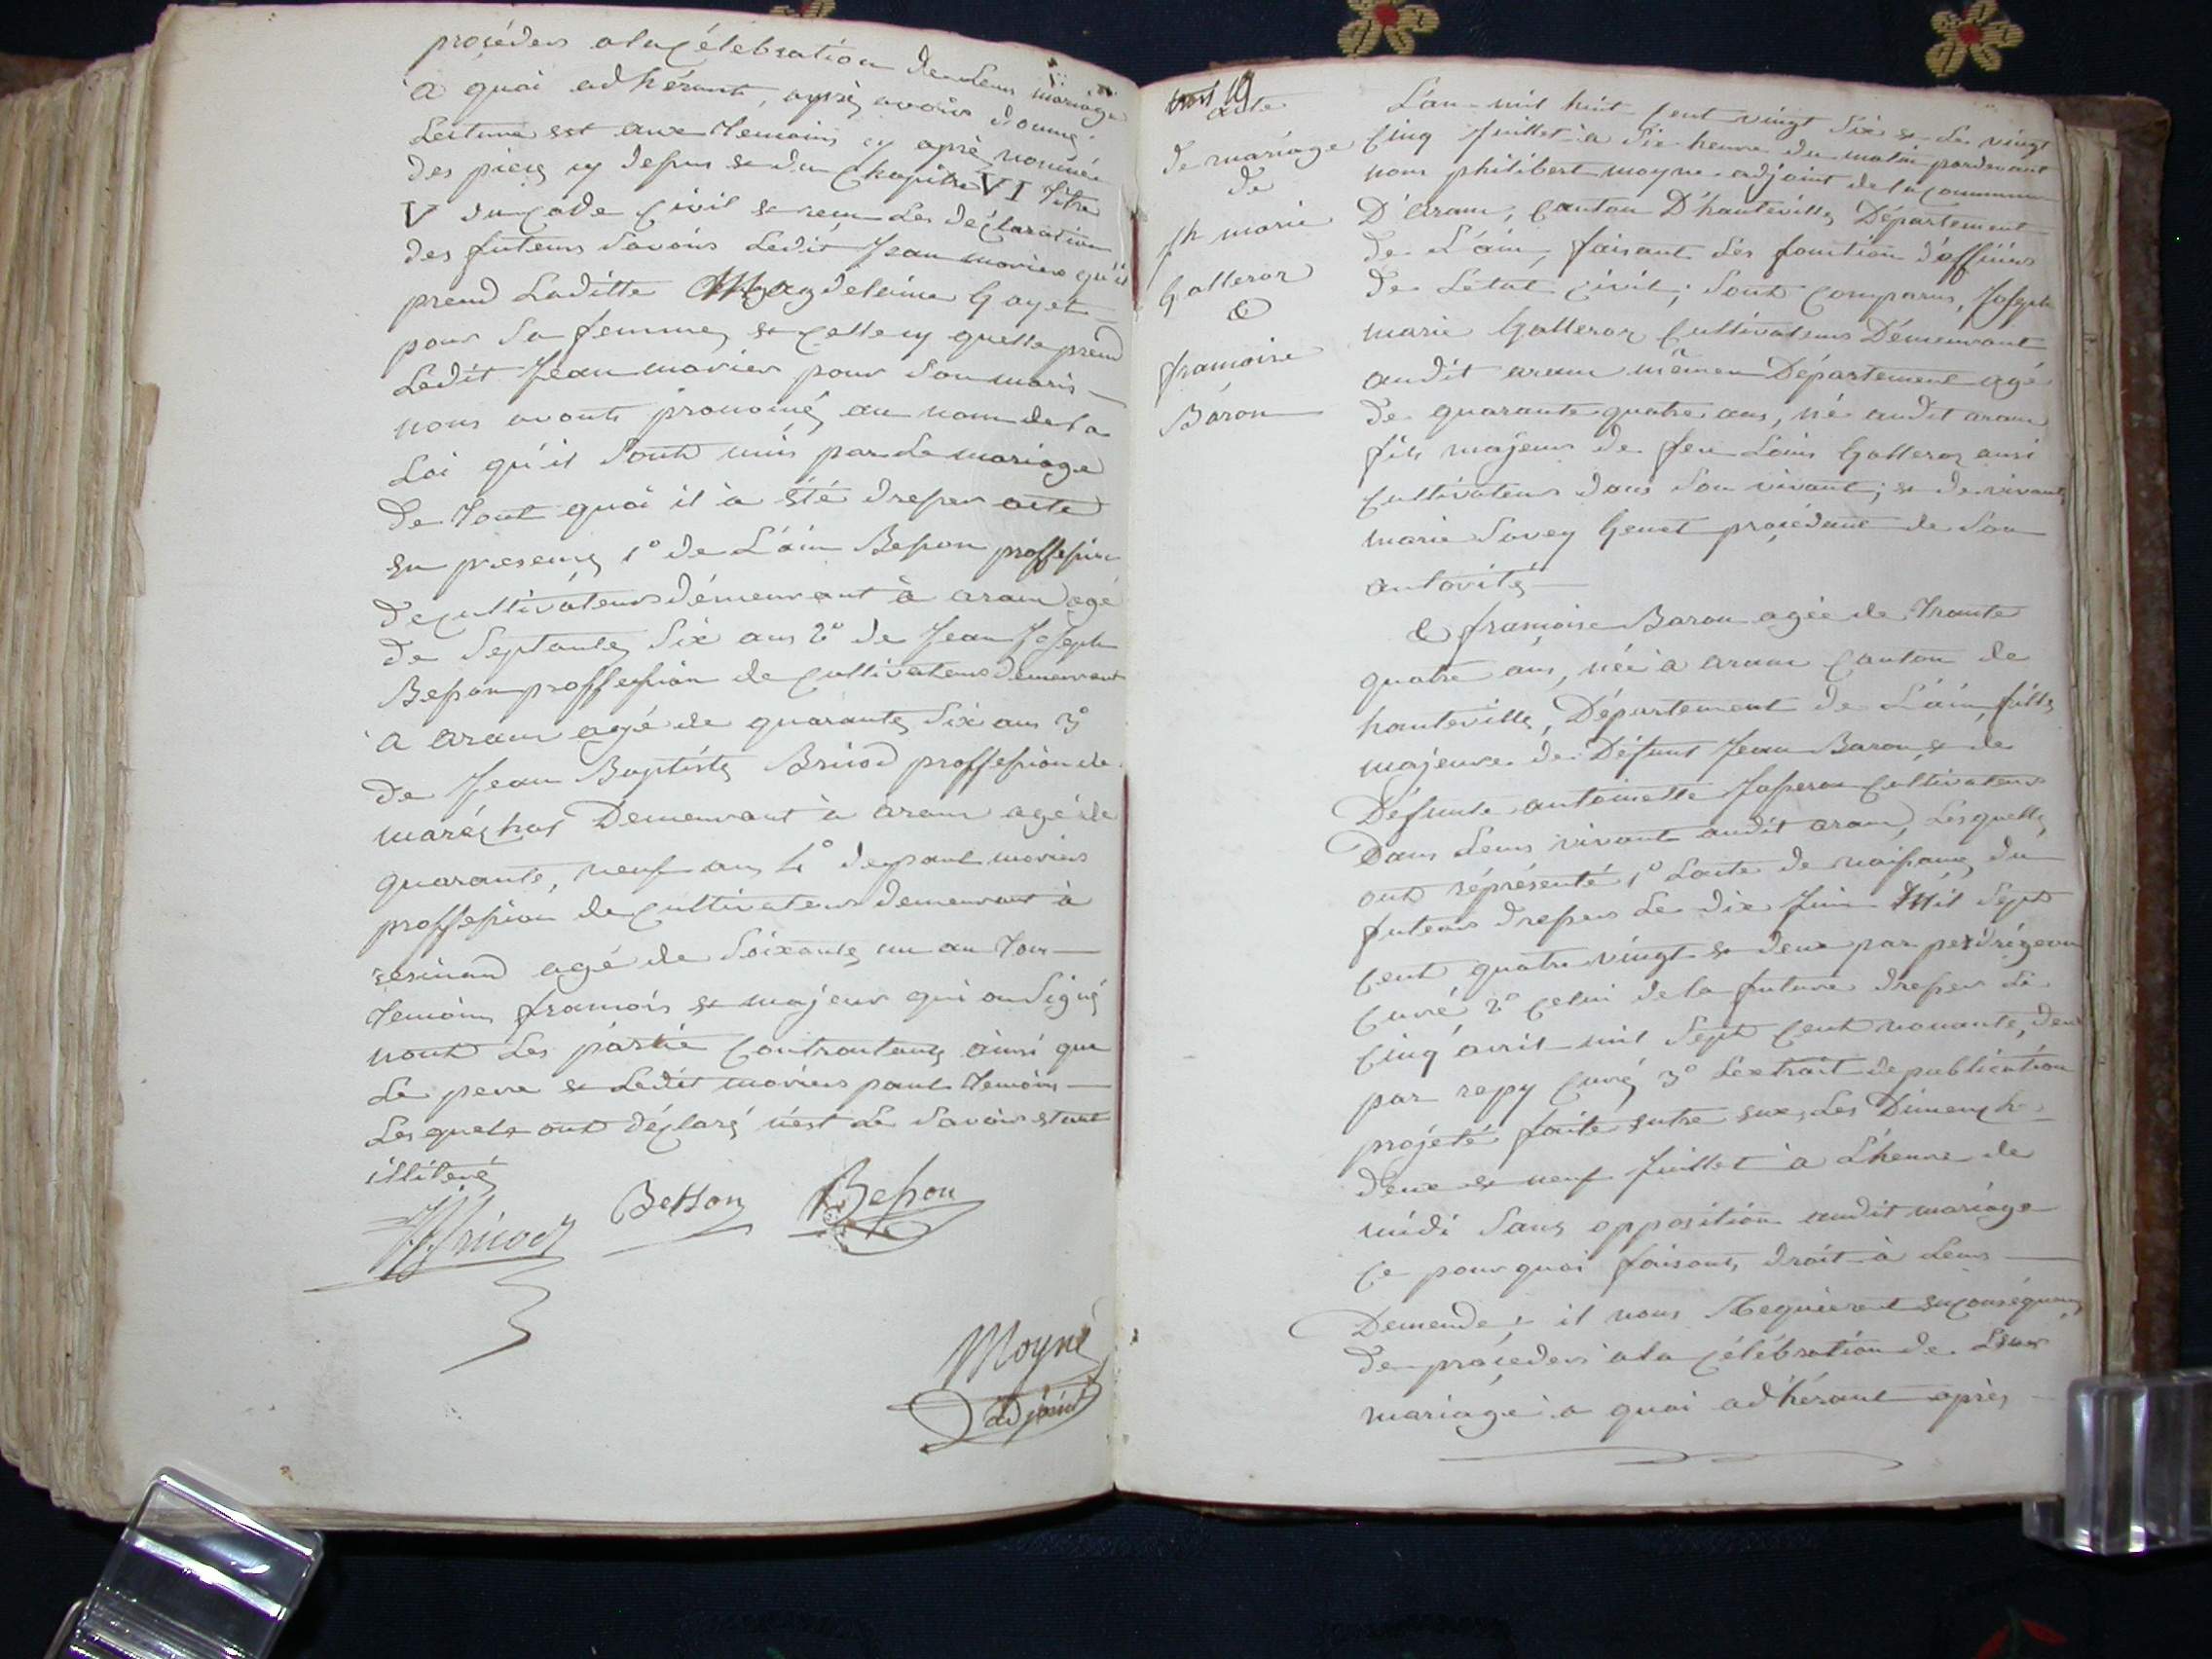 proçéder a la çélébration de Leur mariage
a quoi adhérant, après avoir donné
Lecture est aux temoins cy après nommée
des pieçe cy dessus et du chapitre VI titre
V du çode çivil et reçu Les déclaration
des futeurs Savoir Ledit Jean morier qu'il
prend Laditte Magdelaine Gayet
pour Sa femme, et çelle cy quelle prend
Ledit Jean morier pour Son maris
nous avonts prononcé au nom de la
Loi qu'il Sont unis par Le mariage
de tout quoi il à été dresser acte
en presençe 1º de L'ain Besson proffession
de çultivateur démeurant à aranc agé
de Septante Six ans 2º de Jean Joseph
Besson proffession de çultivateur demeurant
à aranc agé de quarante Six ans 3º
de Jean Baptiste Bricod proffession de
maréçhal Demeurant à aranc agé de
quarante, neuf ans 4º de paul morier
proffession de çultivateur demeurant à
resinand agé de Soixante un an tous
temoins françois et majeur qui on Signé
nont Les partie çontractants ainsi que
Le pere et Ledit moriers paul temoins
Les quels ont déçlaré n'est Le Savoir etant
illiteré
Bricod Besson Besson
Moyne
adjoint
19
acte
de mariage
de
jh marie
Galleror
&
françoise
Baron
L'an mil huit çent vingt Six et Le vingt
çinq Juillet à dix heure du matin pardevant
nous philibert moyne adjoint de la çommune
D'aranc, çanton D'hauteville Département
de L'ain, faisant Les fonction d'offiçiers
de Létat çivil; Sont çomparus, Joseph
marie Galleror çultivateur Démeurant
audit aranc mêmeu Département agé
de quarante quatre ans, né audit aranc
fils majeur de feu Louis Galleror aussi
çultivateur dans Son vivant; et de vivante
marie Savey Genet proçédant de Son
autorité
& françoise Baron agée de trante
quatre ans, née à aranc çanton de
hauteville, Département de L'ain, fille
majeure de Défunt Jean Baron, et de
Défunte antoinette Josseran çultivateur
Dans Leurs vivant audit aranc, Lesquelle
ont réprésenté 1º Lacte de naissançe du
futeur dresser Le dix Juin Mil Sept
çent quatre vingt et deux par perdrigeon
çuré, 2º çelui de la future dresser Le
çinq avril mil Sept çent nonante, deux
par repy çuré 3º Lextrait de publication
projété faite entre eux, Les Dimençhe
deux et neuf Juillet à L'heure de
midi Sans opposition audit mariage
Çe pour quoi faisant, droit à Leur
Demende, il nous Requierent enconséquençe
de proçeder a la çélébration de Leur
mariage a quoi adhérant après